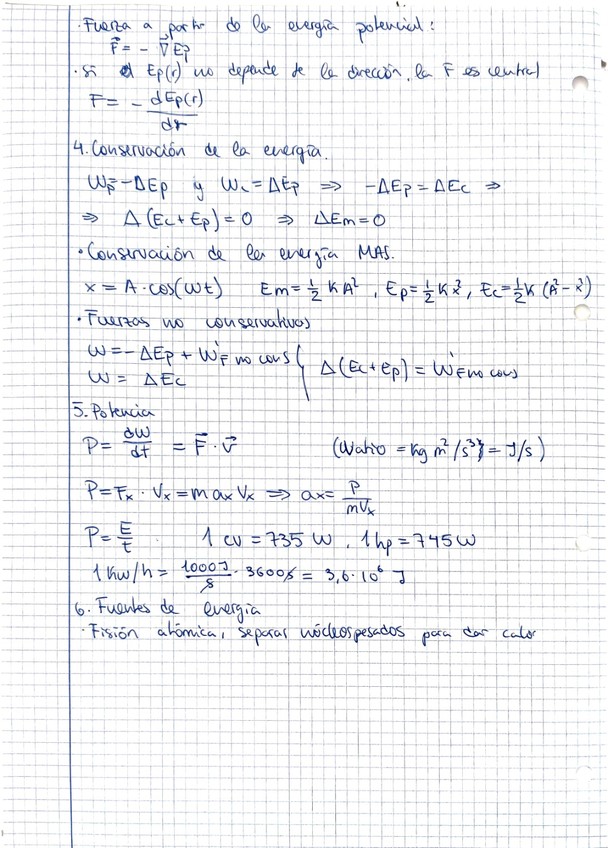 · Fuerza a partir de la energía potencial:
F⃗ = - ∇⃗ Ep
· si Ep(r) no depende de la dirección, la F es central
F = - dEp(r)/dr
4. Conservación de la energía.
Wp = -ΔEp y Wc = ΔEp ⇒ -ΔEp = ΔEc ⇒
⇒ Δ(Ec + Ep) = 0 ⇒ ΔEm = 0
· Conservación de la energía MAS.
x = A · cos(ωt) Em = 1/2 K A², Ep = 1/2 K x², Ec = 1/2 K (A² - x²)
· Fuerzas no conservativas
W = -ΔEp + W'F no cons
W = ΔEc
Δ(Ec + Ep) = W'F no cons
5. Potencia
P = dW/dt = F⃗ · v⃗ (Watio = kg m²/s³ = J/s)
P = Fx · Vx = m ax Vx ⇒ ax = P/mVx
P = E/t . 1 cv = 735 W, 1 hp = 745 W
1 Kw/h = 1000J/s · 3600s = 3,6 · 10⁶ J
6. Fuentes de energía
· Fisión atómica, separar núcleos pesados para dar calor